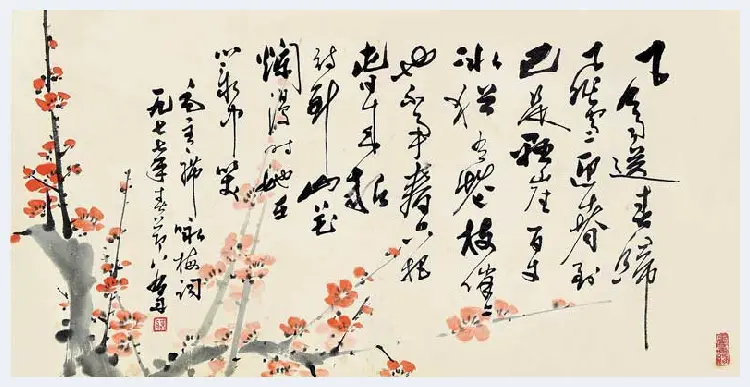 风雨送春歸
飞雪迎春到
已是懸崖百丈
冰犹有花枝俏〻
也不争春只把
春来报
待到山花
烂漫时她在
丛中笑
毛主席咏梅词
一九七七年春节